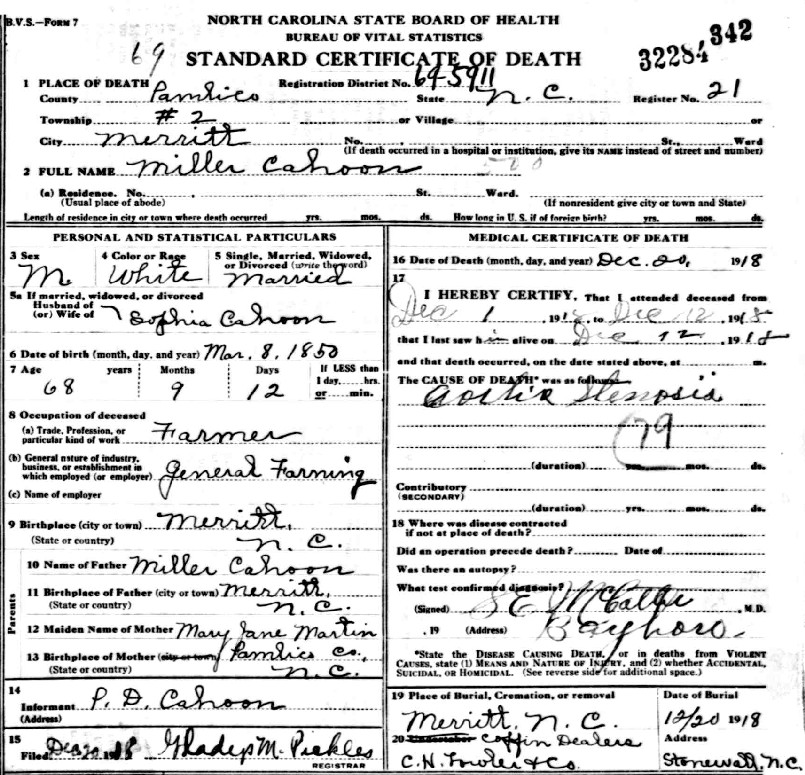 B.V.S.—FORM 7
NORTH CAROLINA STATE BOARD OF HEALTH
BUREAU OF VITAL STATISTICS
69 STANDARD CERTIFICATE OF DEATH
32284 342
1 PLACE OF DEATH Registration District No. 69-5911
County Pamlico State N. C. Register No. 21
Township #2 or Village or
City Merritt No. St., Ward
(If death occurred in a hospital or institution, give its NAME instead of street and number)
2 FULL NAME Miller Cahoon
(a) Residence. No. St. Ward.
(Usual place of abode) (If nonresident give city or town and State)
Length of residence in city or town where death occurred yrs. mos. ds. How long in U. S. if of foreign birth? yrs. mos. ds.
PERSONAL AND STATISTICAL PARTICULARS
3 Sex 4 Color or Race 5 Single, Married, Widowed,
or Divorced (write the word)
M White Married
5a If married, widowed, or divorced
Husband of
(or) Wife of Sophia Cahoon
6 Date of birth (month, day, and year) Mar. 8, 1850
7 Age years Months Days If LESS than
1 day, hrs.
68 9 12 or min.
8 Occupation of deceased
(a) Trade, Profession, or
particular kind of work Farmer
(b) General nature of industry,
business, or establishment in
which employed (or employer) General Farming
(c) Name of employer
9 Birthplace (city or town) Merritt,
(State or country) N. C.
Parents
10 Name of Father Miller Cahoon
11 Birthplace of Father (city or town) Merritt,
(State or country) N. C.
12 Maiden Name of Mother Mary Jane Martin
13 Birthplace of Mother (city or town) Pamlico Co.,
(State or country) N. C.
14
Informant P. D. Cahoon
(Address)
15
Filed Dec 20 1918 Gladys M. Pickles
REGISTRAR
MEDICAL CERTIFICATE OF DEATH
16 Date of Death (month, day, and year) Dec. 20, 1918
17
I HEREBY CERTIFY, That I attended deceased from
Dec 1 1918, to Dec 12 1918
that I last saw him alive on Dec 12 1918
and that death occurred, on the date stated above, at m.
The CAUSE OF DEATH* was as follows:
Aortic Stenosis
79
(duration) yrs. mos. ds.
Contributory
(SECONDARY)
(duration) yrs. mos. ds.
18 Where was disease contracted
if not at place of death?
Did an operation precede death? Date of
Was there an autopsy?
What test confirmed diagnosis?
(Signed) M.D.
, 19 (Address) Bayboro.
*State the DISEASE CAUSING DEATH, or in deaths from VIOLENT
CAUSES, state (1) MEANS AND NATURE OF INJURY, and (2) whether ACCIDENTAL,
SUICIDAL, OR HOMICIDAL. (See reverse side for additional space.)
19 Place of Burial, Cremation, or removal Date of Burial
Merritt, N. C. 12/20 1918
20 Undertaker Coffin Dealers Address
C. H. Fowler & Co. Stonewall, N. C.